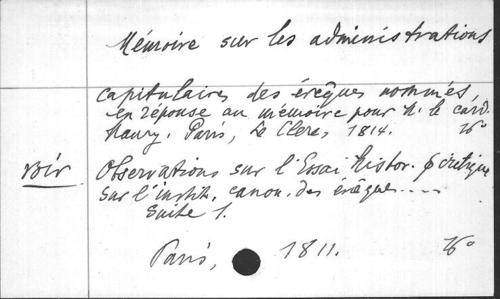 Mémoire sur les administrations
capitulaires des évêques nommés,
en réponse au mémoire pour M. le card.
Maury. Paris, Le Clere, 1814. 16°
voir Observations sur l'Essai histor. & critique
sur l'instit. canon. des évêques....
Suite 1.
Paris, 1811. 16°